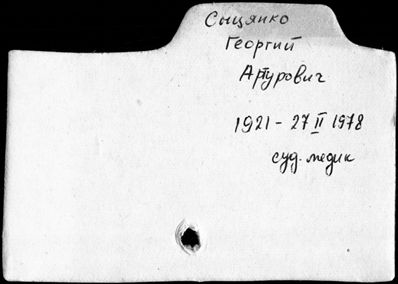 Сыцянко
Георгий
Артурович
1921 - 27 II 1978
суд. медик